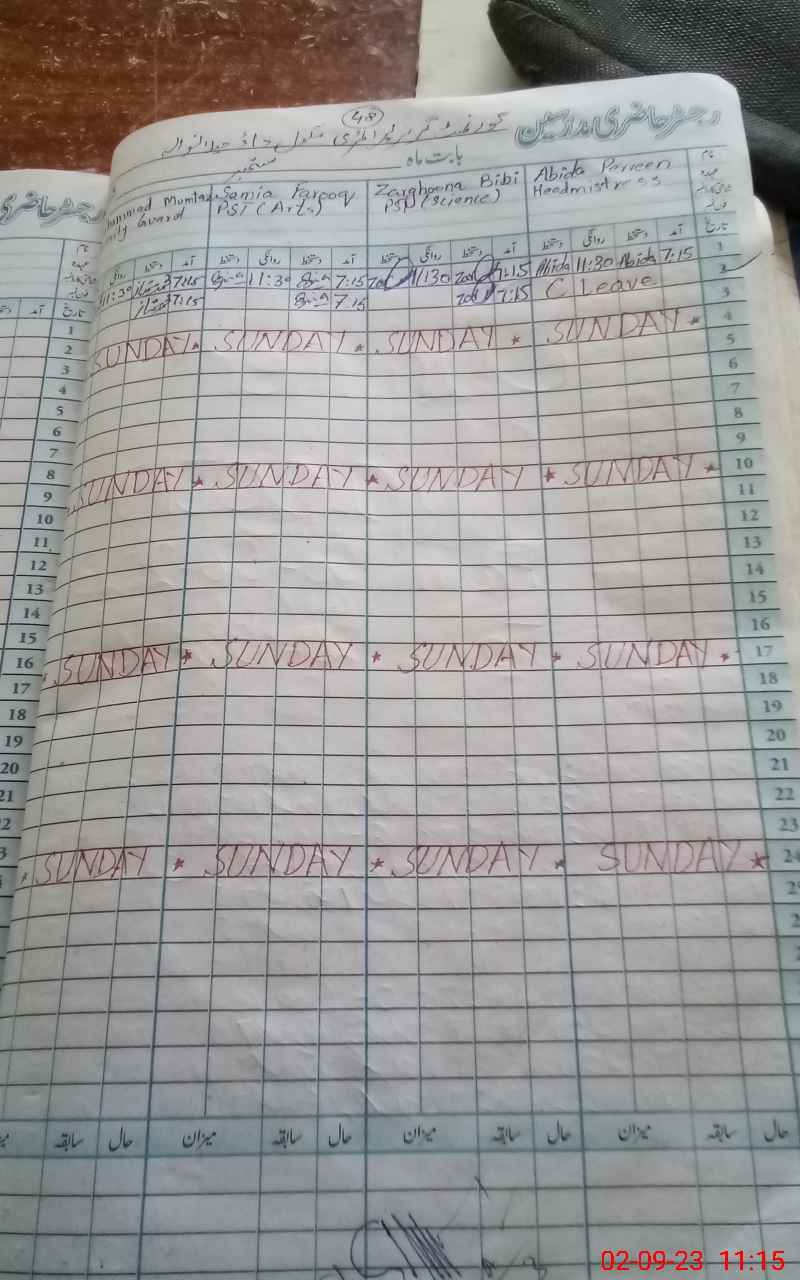 48
رجسٹر حاضری مدارسین
گورنمنٹ گرلز پرائمری سکول
بابت ماہ ستمبر
نام
عہدہ
تاریخ
Abida Perveen
Headmistress
Zarghoona Bibi
PST (Science)
Samia Farooq
PST (Arts)
Mumtaz
Guard
آمد دستخط روانگی دستخط آمد دستخط روانگی دستخط آمد دستخط روانگی دستخط آمد دستخط روانگی
1
7:15 Abida 11:30 Abida 7:15 11:30 7:15 11:30 7:15 ممتاز 11:30
2
C Leave 7:15 7:15 7:15 ممتاز
3
SUNDAY * SUNDAY * SUNDAY * SUNDAY *
4
5
6
7
8
9
SUNDAY * SUNDAY * SUNDAY * SUNDAY * 10
11
12
13
14
15
16
SUNDAY * SUNDAY * SUNDAY * SUNDAY * 17
18
19
20
21
22
23
SUNDAY * SUNDAY * SUNDAY * SUNDAY * 24
حال سابقہ میزان حال سابقہ میزان حال سابقہ میزان حال سابقہ
رجسٹر حاضری
نام
عہدہ
تاریخ
آمد
1
2
3
4
5
6
7
8
9
10
11
12
13
14
15
16
17
18
19
20
21
02-09-23 11:15